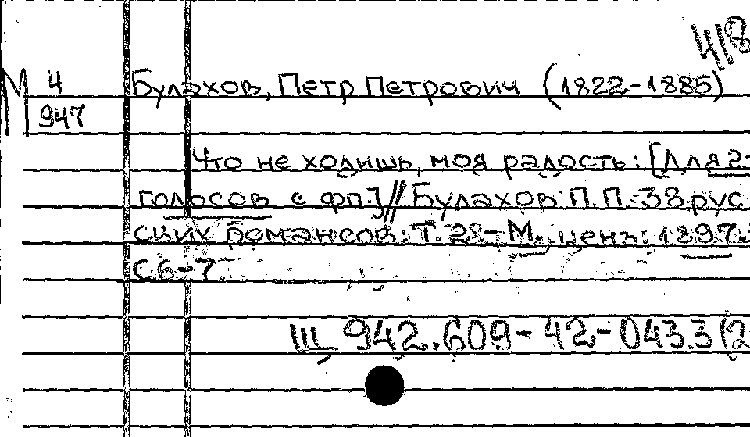 418
М 4 Булахов, Петр Петрович (1822-1885)
947
Что не ходишь, моя радость: [Для 2
голосов с фп.] // Булахов П. П. 38 рус
ских романсов: Т. 28 - М., ценз: 1897.
С. 6-7
Ш 942.609-42-043.3 (2